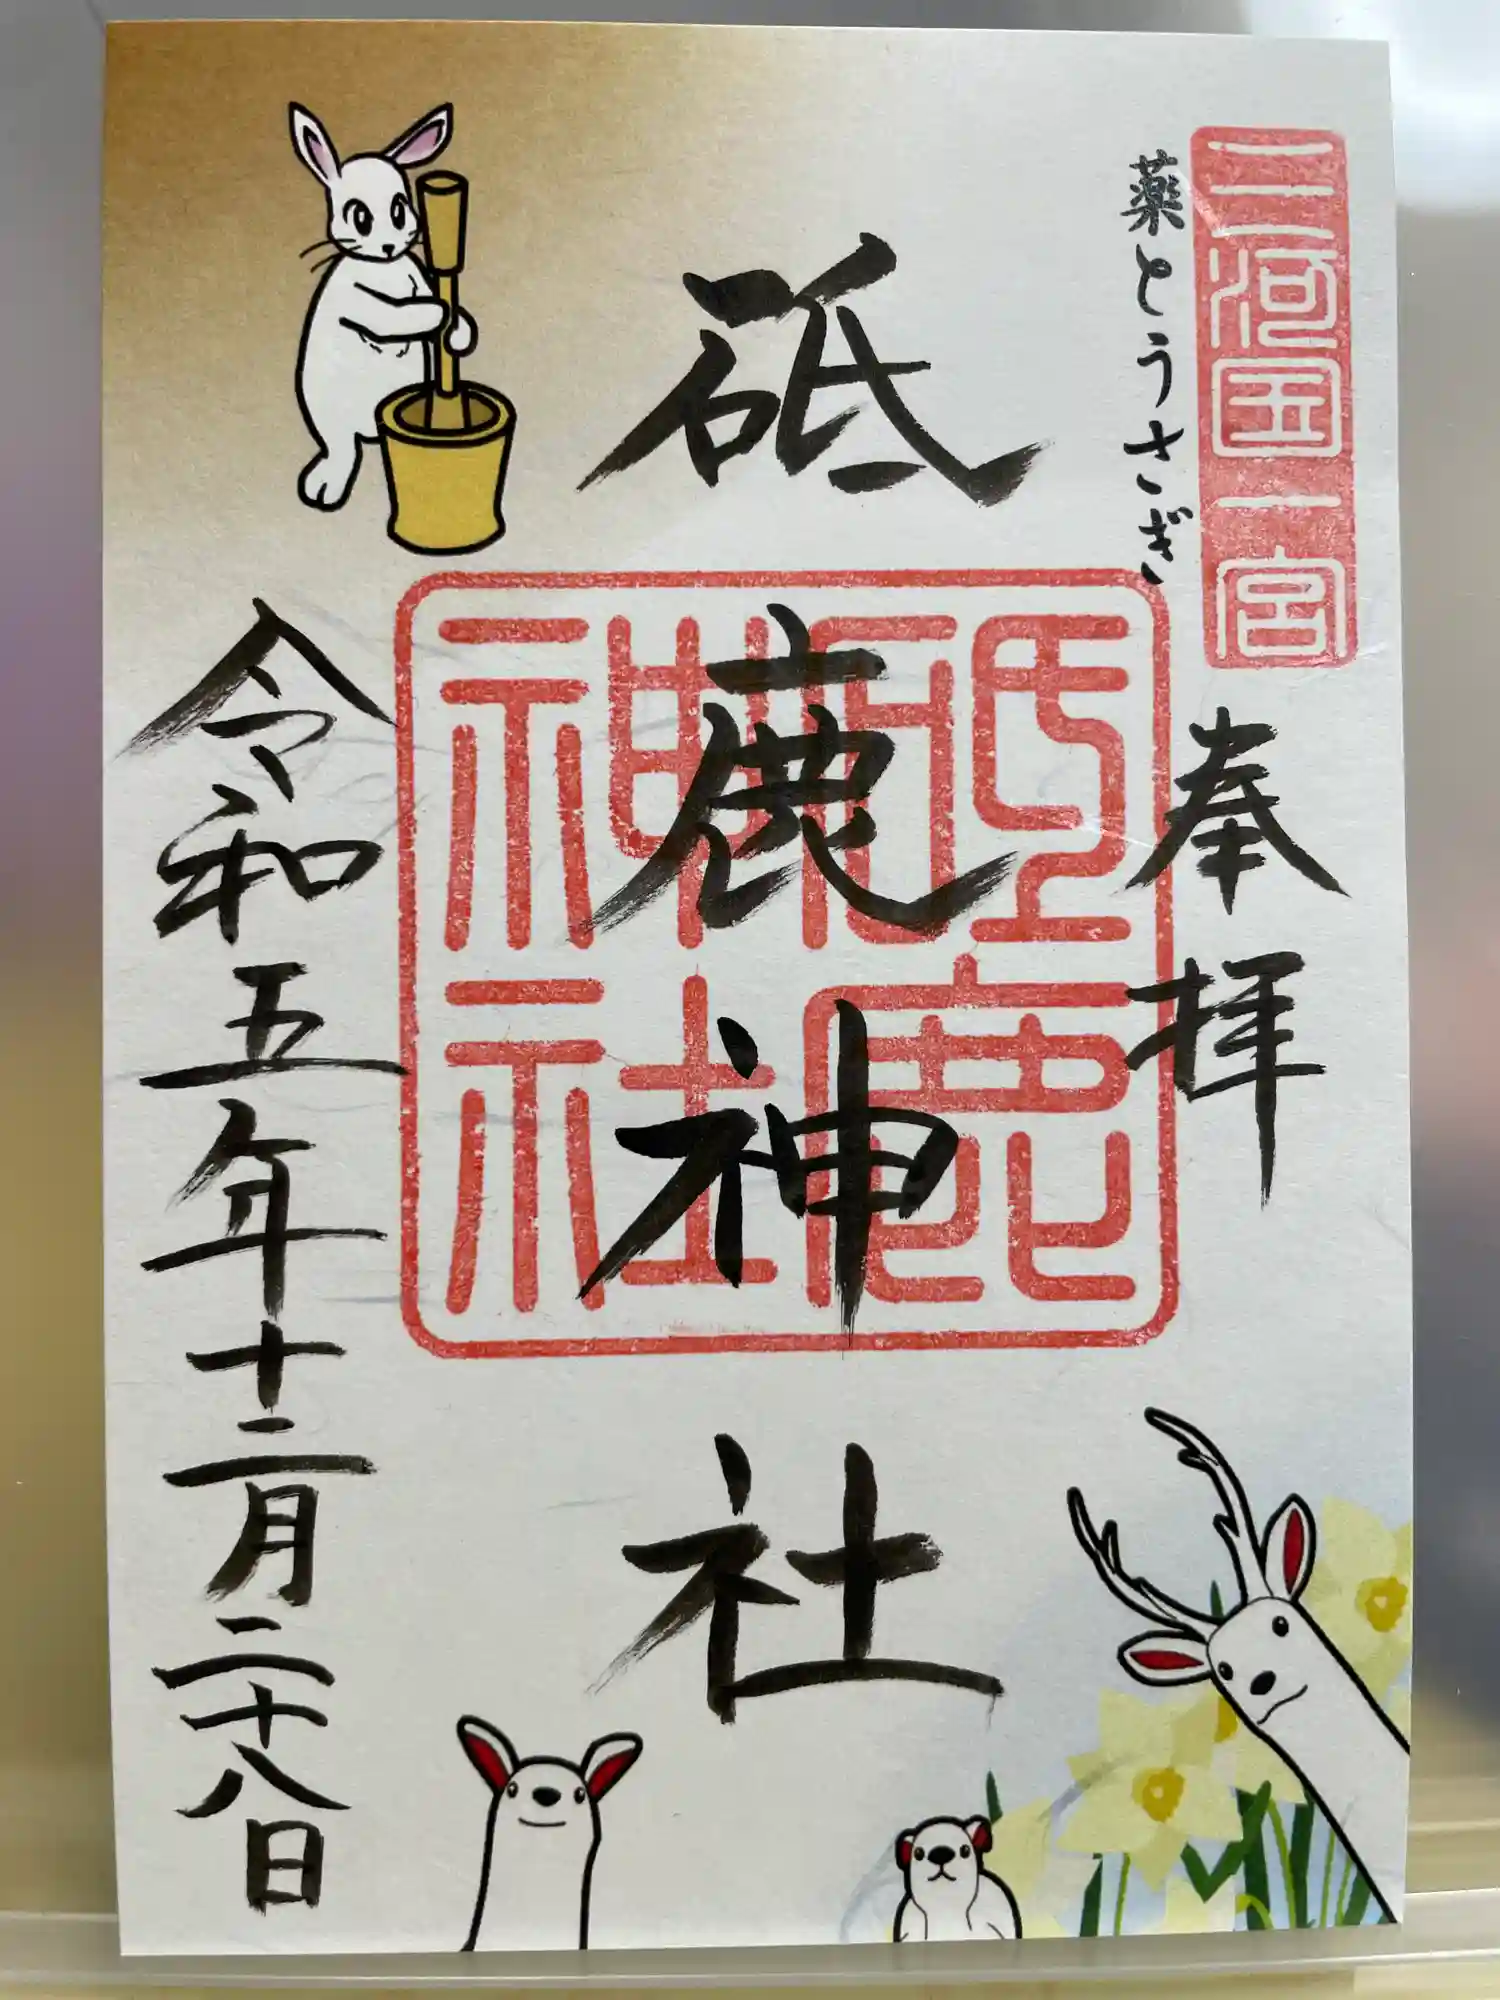 三河国一宮
薬とうさぎ
奉拝
砥鹿神社
砥鹿神社
令和五年十二月二十八日